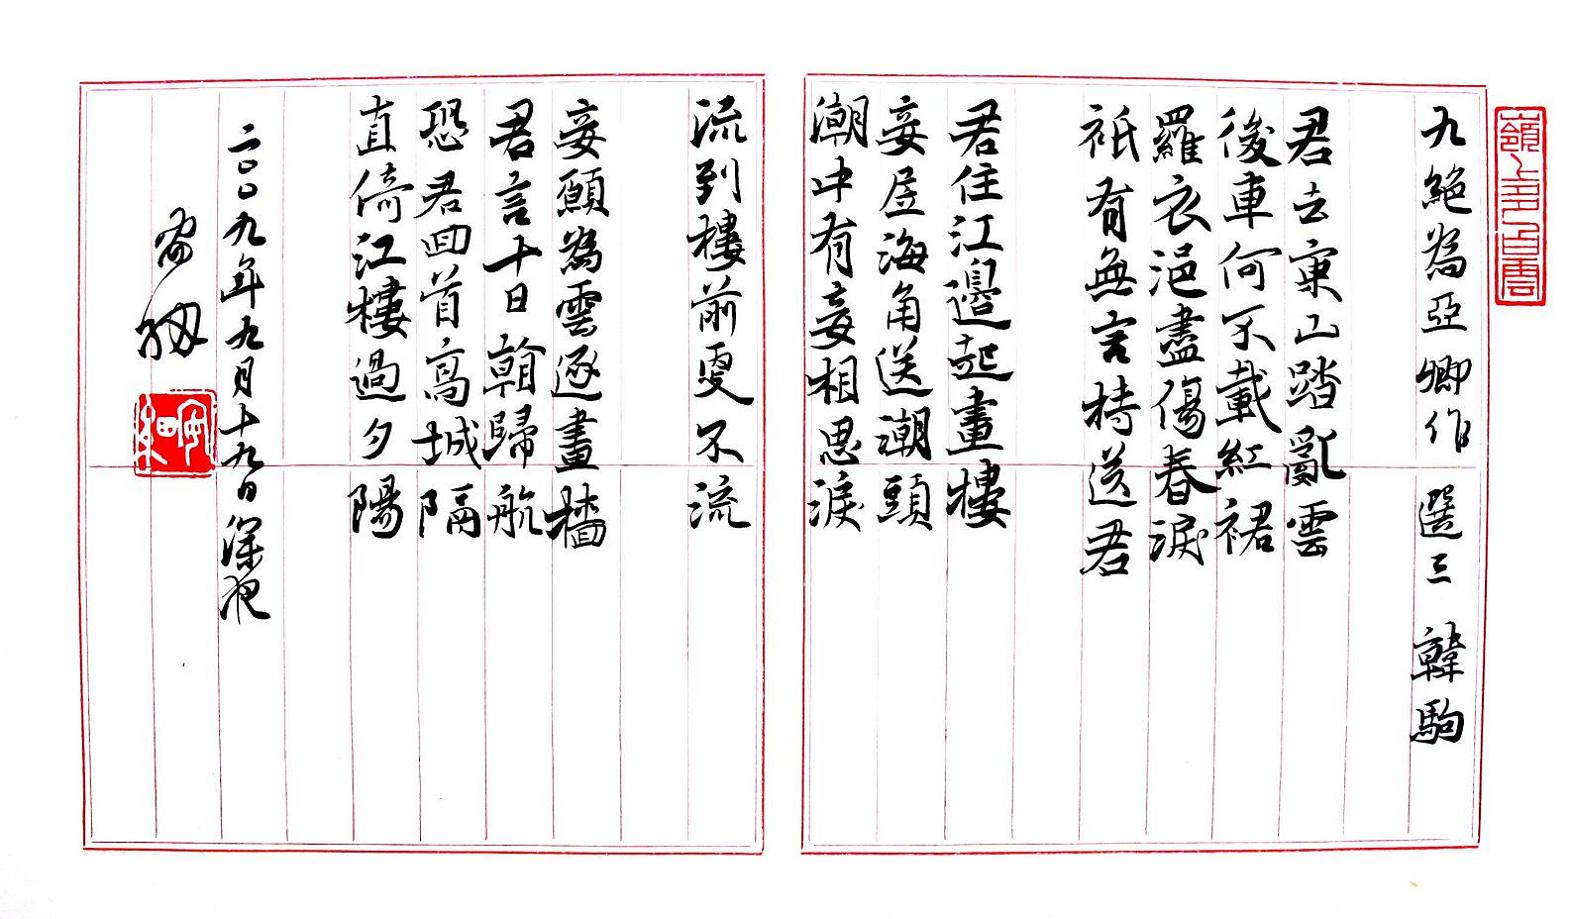 嶺上多白雲
九絕為亞卿作 選三 韓駒
君去東山踏亂雲
後車何不載紅裙
羅衣浥盡傷春淚
祇有無言持送君
君住江邊起畫樓
妾居海角送潮頭
潮中有妾相思淚
流到樓前更不流
妾願為雲逐畫檣
君言十日看歸航
恐君回首高城隔
直倚江樓過夕陽
二〇〇九年九月十九日深夜